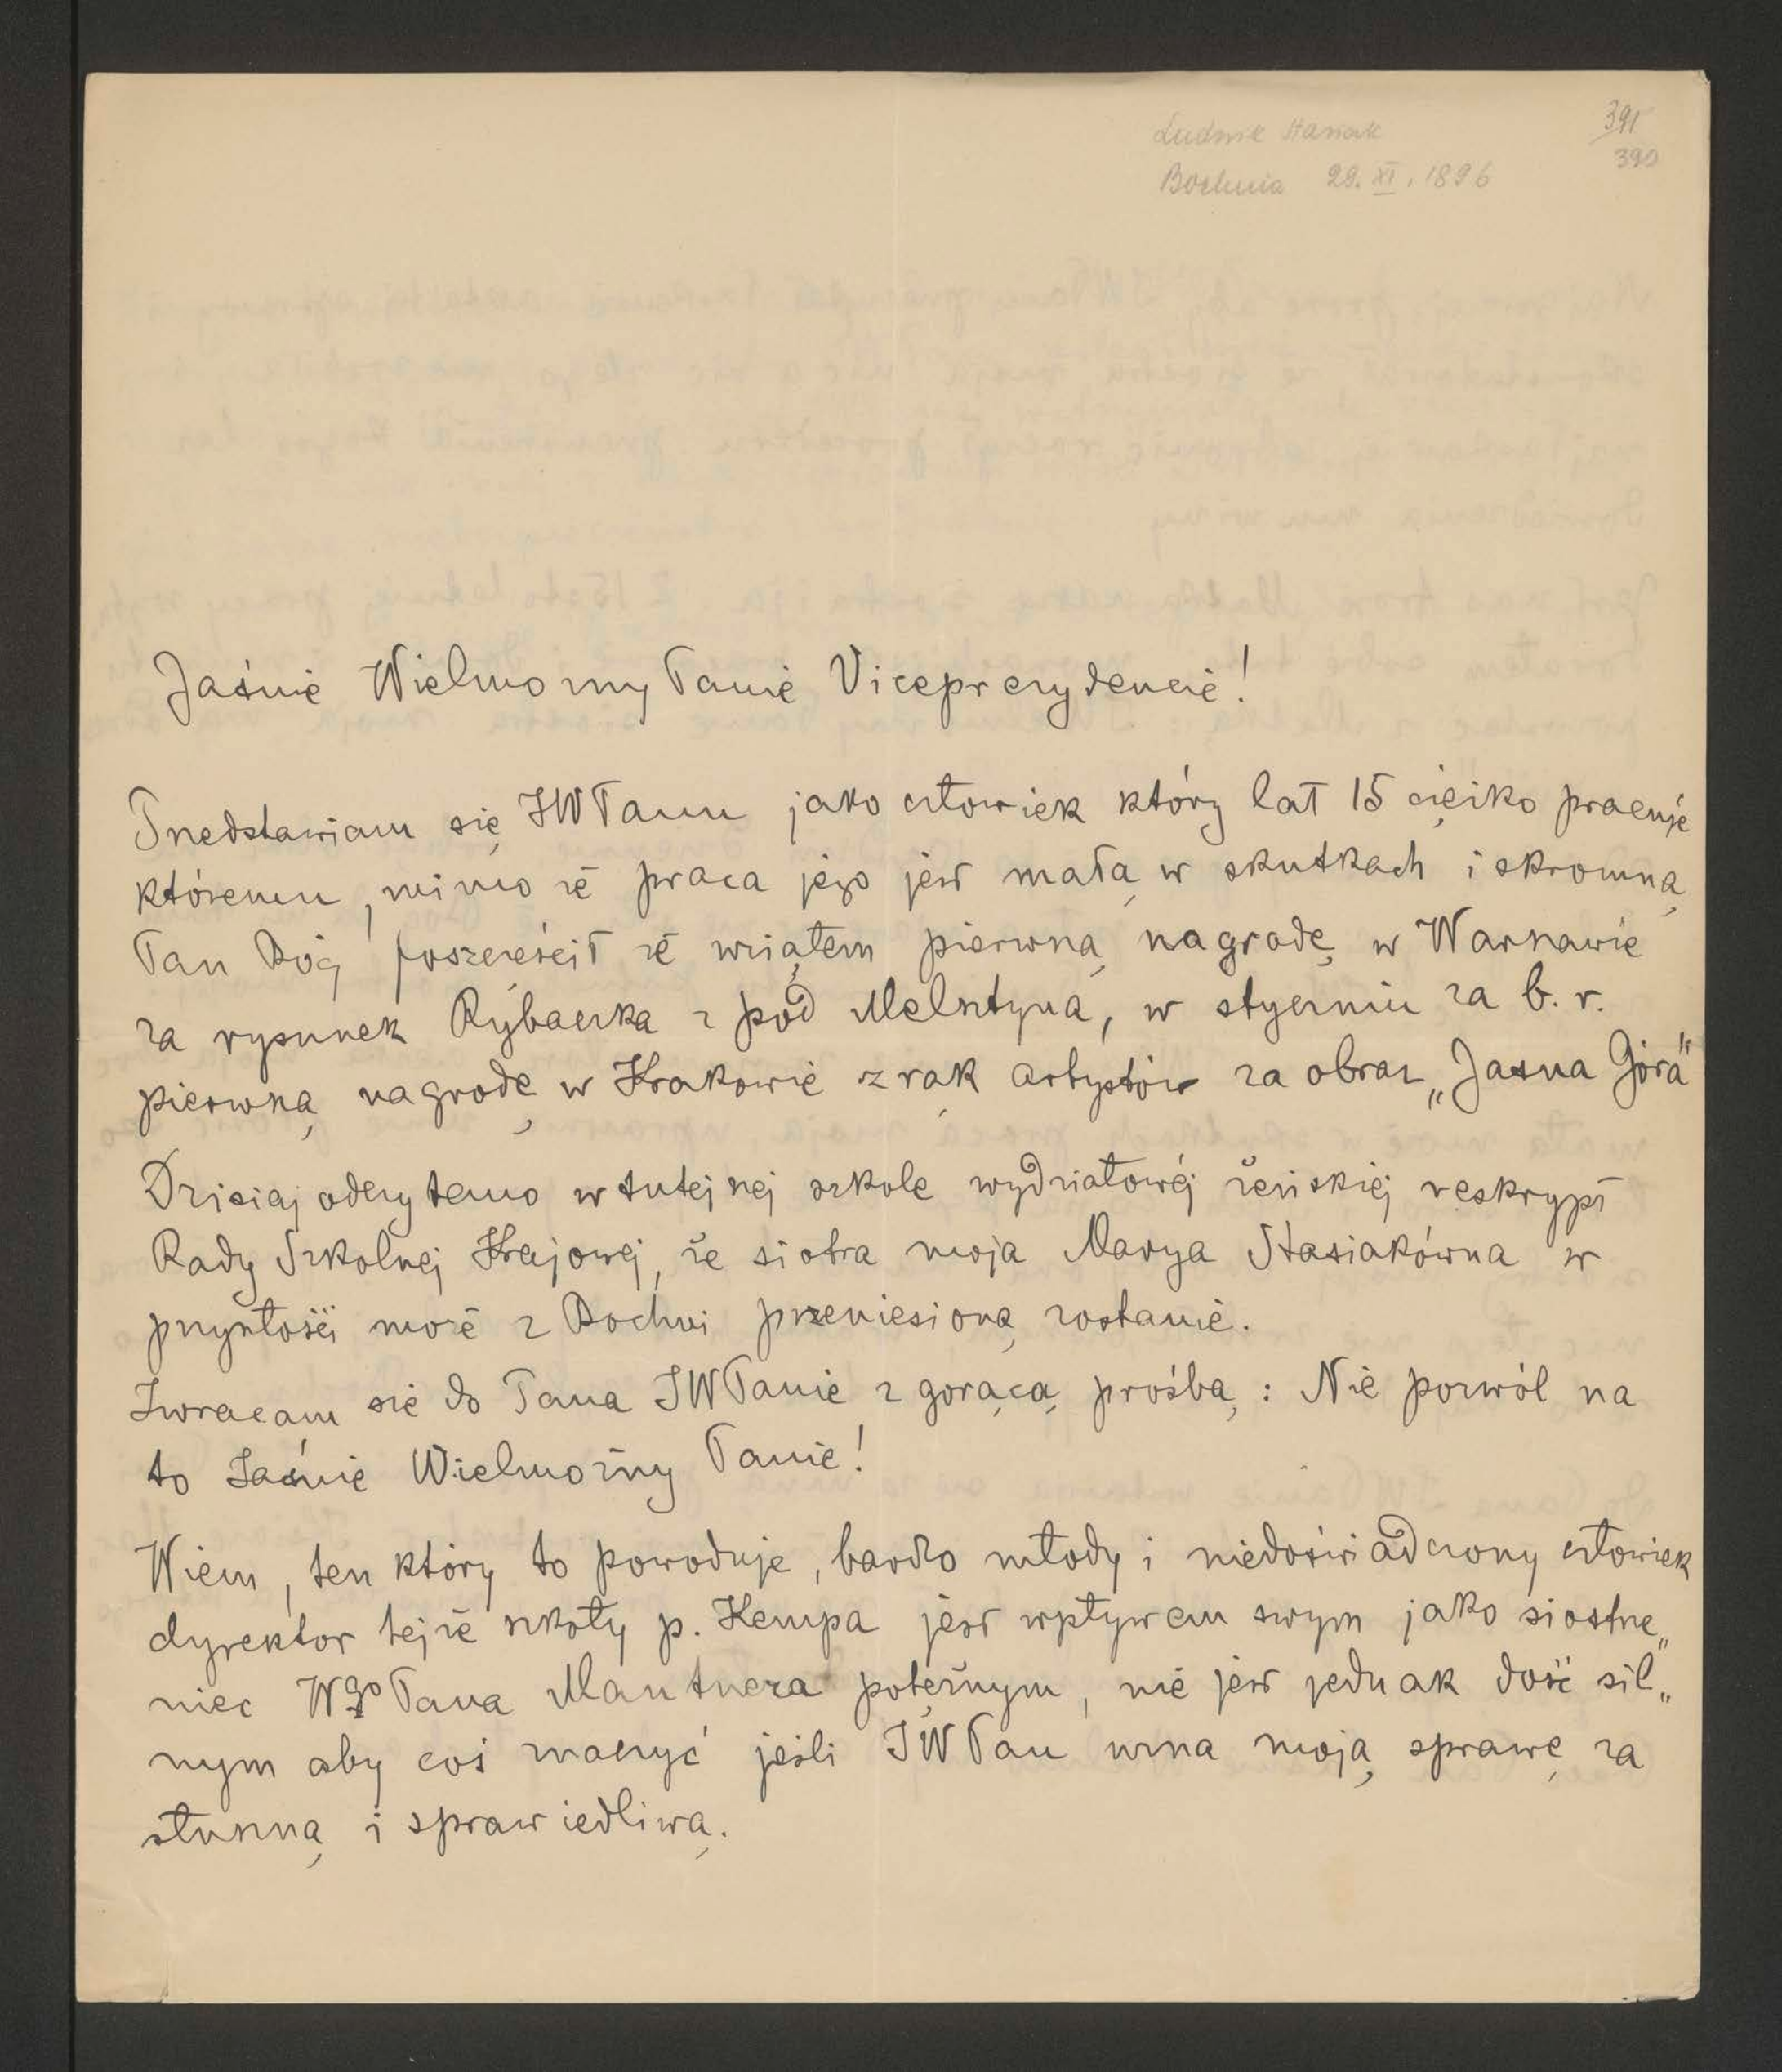 Ludwik Stasiak
391
Bochnia 29. XI. 1896
390
Jaśnie Wielmożny Panie Viceprezydencie!
Przedstawiam się JWPanu jako człowiek który lat 15 ciężko pracuje
któremu, mimo że praca jego jest małą w skutkach i skromną
Pan Bóg poszczęścił że wziąłem pierwszą nagrodę w Warszawie
za rysunek Rybaczka z pod Melsztyna, w styczniu za b. r.
pierwszą nagrodę w Krakowie z rąk artystów za obraz „Jasna Góra"
Dzisiaj odczytano w tutejszej szkole wydziałowéj żeńskiéj reskrypt
Rady Szkolnej Krajowej, że siotra moja Marya Stasiakówna w
przyszłości może z Bochni przeniesioną zostanie.
Zwracam się do Pana JWPanie z gorącą prośbą: Nie pozwól na
to Jaśnie Wielmożny Panie!
Wiem, ten który to powoduje, bardzo młody i niedoświadczony człowiek
dyrektor tejże szkoły p. Kempa jest wpływem swym jako siostrze„
niec Wgo Pana Mantnera potężnym, nie jest jednak dość sil„
nym aby coś znaczyć jeśli JWPan uzna moją sprawę za
słuszną i sprawiedliwą.